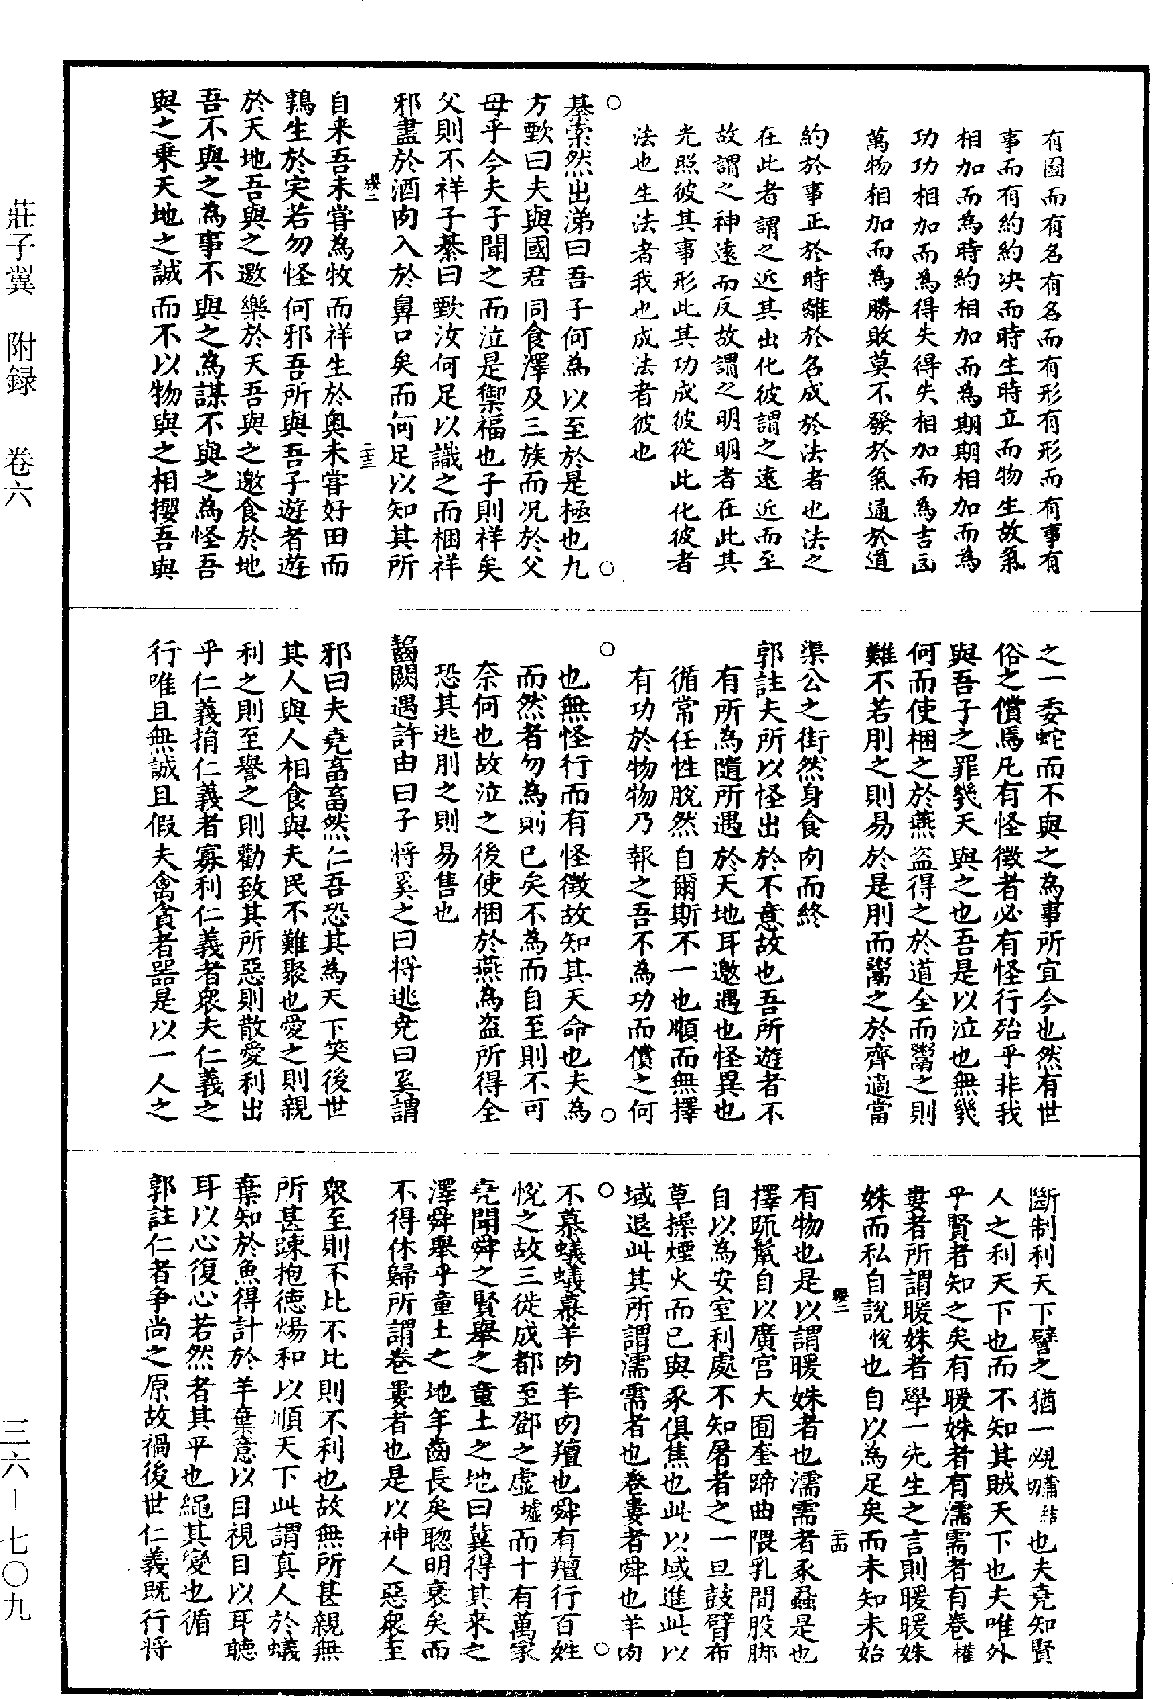 有圖而有名有名而有形有形而有事有
事而有約約決而時生時立而物生故氣
相加而為時約相加而為期期相加而為
功功相加而為得失得失相加而為吉凶
萬物相加而為勝敗莫不發於氣通於道
約於事正於時離於名成於法者也法之
在此者謂之近其出化彼謂之遠近而至
故謂之神遠而反故謂之明明者在此其
光照彼其事形此其功成彼從此化彼者
法也生法者我也成法者彼也
○綦索然出涕曰吾子何為以至於是極也九○
方歅曰夫與國君同食澤及三族而况於父
母乎今夫子聞之而泣是禦福也子則祥矣
父則不祥子綦曰歅汝何足以識之而梱祥
邪盡於酒肉入於鼻口矣而何足以知其所
自来吾未嘗為牧而祥生於奥未嘗好田而
鶉生於宎若勿怪何邪吾所與吾子遊者遊
於天地吾與之邀樂於天吾與之邀食於地
吾不與之為事不與之為謀不與之為怪吾
與之乘天地之誠而不以物與之相攖吾與
之一委蛇而不與之為事所宜今也然有世
俗之償焉凡有怪徵者必有怪行殆乎非我
與吾子之罪㡬天與之也吾是以泣也無㡬
何而使梱之於燕盗得之於道全而鬻之則
難不若刖之則易於是刖而鬻之於齊適當
渠公之街然身食肉而終
郭註夫所以怪出於不意故也吾所遊者不
有所為隨所遇於天地耳邀遇也怪異也
循常任性脫然自爾斯不一也順而無擇
有功於物物乃報之吾不為功而償之何
○也無怪行而有怪徵故知其天命也夫為○
而然者勿為則已矣不為而自至則不可
奈何也故泣之後使梱於燕為盗所得全
恐其逃刖之則易售也
齧闕遇許由曰子將奚之曰將逃尭曰奚謂
邪曰夫尭畜畜然仁吾恐其為天下笑後世
其人與人相食與夫民不難聚也愛之則親
利之則至譽之則勸致其所惡則散愛利出
乎仁義捐仁義者寡利仁義者衆夫仁義之
行唯且無誠且假夫禽貪者器是以一人之
斷制利天下譬之猶一覕也夫尭知賢
人之利天下也而不知其賊天下也夫唯外
乎賢者知之矣有暖姝者有濡需者有卷權
婁者所謂暖姝者學一先生之言則暖暖姝
姝而私自說悅也自以為足矣而未知未始
有物也是以謂暖姝者也濡需者豕蝨是也
擇疏鬣自以廣宫大囿奎蹄曲隈乳間股脚
自以為安室利處不知屠者之一旦鼓臂布
草操煙火而已與豕俱焦也此以域進此以
域退此其所謂濡需者也卷婁者舜也羊肉
○不慕蟻蟻慕羊肉羊肉羶也舜有羶行百姓○
悅之故三徙成都至鄧之虚墟而十有萬家
尭聞舜之賢舉之童土之地曰冀得其来之
澤舜舉乎童土之地年齒長矣聰明衰矣而
不得休歸所謂卷婁者也是以神人惡衆至
衆至則不比不比則不利也故無所甚親無
所甚踈抱徳煬和以順天下此謂真人於蟻
棄知於魚得計於羊棄意以目視目以耳聽
耳以心復心若然者其平也繩其變也循
郭註仁者争尚之原故禍後世仁義既行將
莊子翼　附録　卷六
三六—七〇九